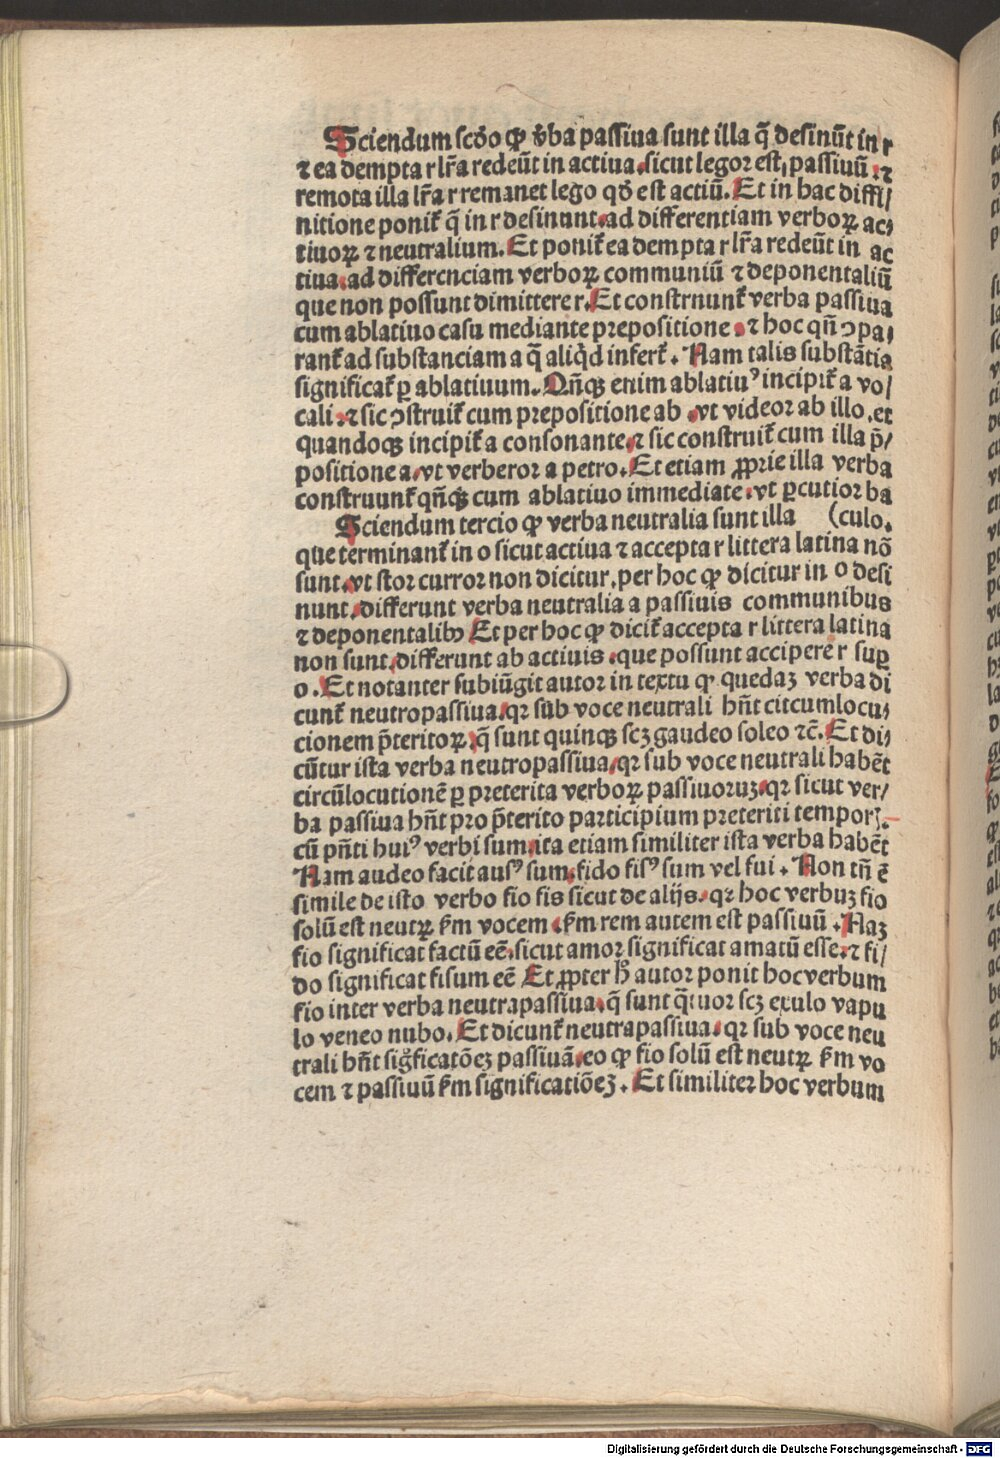 Sciendum scd̕o ꝙ v̕ba passiua sunt illa q̄ desinūt in r
⁊ ea dempta r lr̄a redeūt in actiua. sicut legor est, passiuū .⁊
remota illa lr̄a r remanet lego qd̕ est actiū. Et in hac diffi/
nitione ponit᷑ q̄ in r desinunt. ad differentiam verboꝝ ac/
tiuoꝝ ⁊ neutralium. Et ponit᷑ ea dempta r lr̄a redeūt in ac
tiua. ad differcnciam verboꝝ communiū ⁊ deponentaliū
que non possunt dimittere r. Et constrnunt᷑ verba passiua
cum ablatiuo casu mediante prepositione . ⁊ hoc qn̄ ↄpa/
rant᷑ ad substanciam a q̄ aliqͥd infert᷑ . Nam talis substātia
significat᷑ ꝑ ablatiuum. Qn̄qꝫ enim ablatiuꝰ incipit᷑ a vo/
cali .⁊ sic ↄstruit᷑ cum prepositione ab . vt videor ab illo. et
quandoqꝫ incipit᷑ a consonante. ⁊ sic construit᷑ cum illa p̄/
positione a. vt verberor a petro. Et etiam ꝓprie illa verba
construunt᷑ qn̄qꝫ cum ablatiuo immediate. vt ꝑcutior ba
Sciendum tercio ꝙ verba neutralia sunt illa (culo.
que terminant᷑ in o sicut actiua ⁊ accepta r littera latina nō
sunt. vt stor curror non dicitur. per hoc ꝙ dicitur in o desi
nunt. differunt verba neutralia a passiuis communibus
⁊ deponentalibꝫ Et per hoc ꝙ dicit᷑ accepta r littera latina
non sunt. differunt ab actiuis . que possunt accipere r suꝑ
o . Et notanter subiūgit autor in textu ꝙ quedaꝫ verba di
cunt᷑ neutropassiua. qꝛ sub voce neutrali hn̄t citcumlocu/
cionem p̄teritoꝝ. q̄ sunt quinqꝫ scꝫ gaudeo soleo ⁊c̄. Et di/
cūtur ista verba neutropassiua. qꝛ sub voce neutrali habēt
circūlocutionē ꝑ preterita verboꝝ passiuoruꝫ. qꝛ sicut ver/
ba passiua hn̄t pro p̄terito participium preteriti temporꝫ.
cū pn̄ti huiꝰ verbi sum. ita etiam similiter ista verba habēt
Nam audeo facit ausꝰ sum. fido fisꝰ sum vel fui . Non tn̄ ē
simile de isto verbo fio fis sicut de alijs. qꝛ hoc verbuꝫ fio
solū est neutꝝ ẜm vocem . ẜm rem autem est passiuū . Naꝫ
fio significat factū eē. sicut amor significat amatū esse. ⁊ fi/
do significat fisum eē Et ꝓpter hͦ autor ponit hoc verbum
fio inter verba neutrapassiua. q̄ sunt qͣtuor scꝫ exulo vapu
lo veneo nubo. Et dicunt᷑ neutrapassiua. qꝛ sub voce neu
trali hn̄t sigͥficatōeꝫ passiuā. eo ꝙ fio solū est neutꝝ ẜm vo
cem ⁊ passiuū ẜm significatiōeꝫ . Et similiter hoc verbum
Digitalisierung gefördert durch die Deutsche Forschungsgemeinschaft - DFG